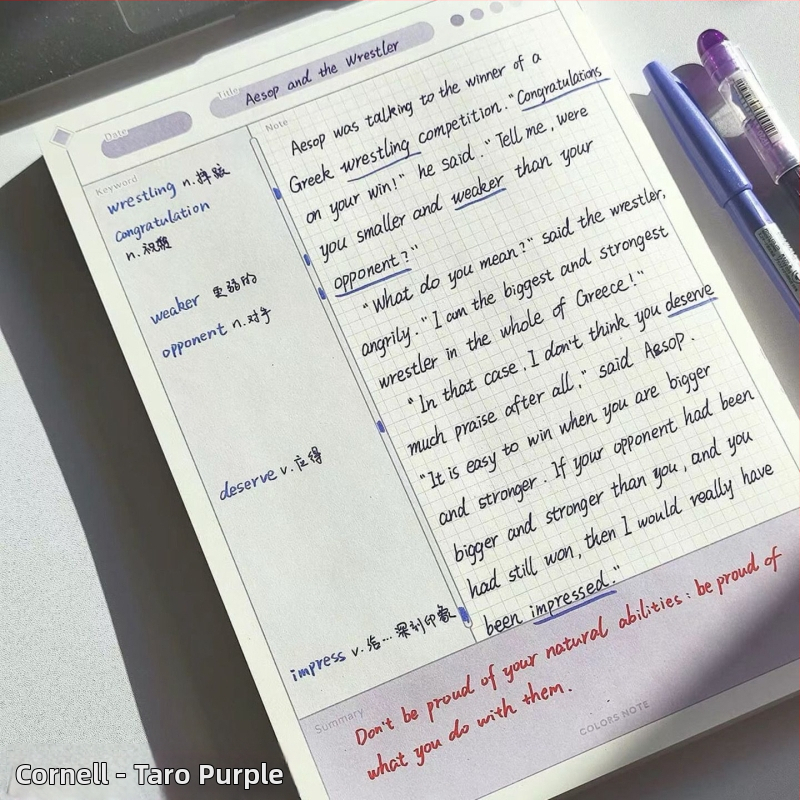 Title
Aesop and the Wrestler
Date
Keyword
wrestling n.摔跤
congratulation
n.祝贺
weaker 更弱的
opponent n.对手
deserve v.应得
impress v.给…深刻印象
Note
Aesop was talking to the winner of a
Greek wrestling competition. "Congratulations
on your win!" he said. "Tell me, were
you smaller and weaker than your
opponent?"
"What do you mean?" said the wrestler,
angrily. "I am the biggest and strongest
wrestler in the whole of Greece!"
"In that case, I don't think you deserve
much praise after all." said Aesop.
"It is easy to win when you are bigger
and stronger. If your opponent had been
bigger and stronger than you, and you
had still won, then I would really have
been impressed."
Summary
Don't be proud of your natural abilities: be proud of
what you do with them.
COLORS NOTE
Cornell - Taro Purple